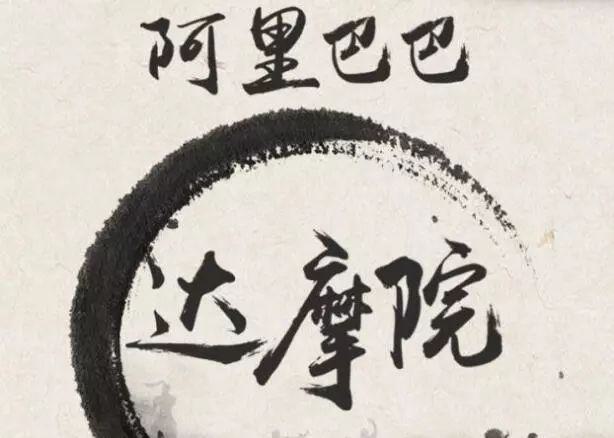 阿里巴巴
达摩院